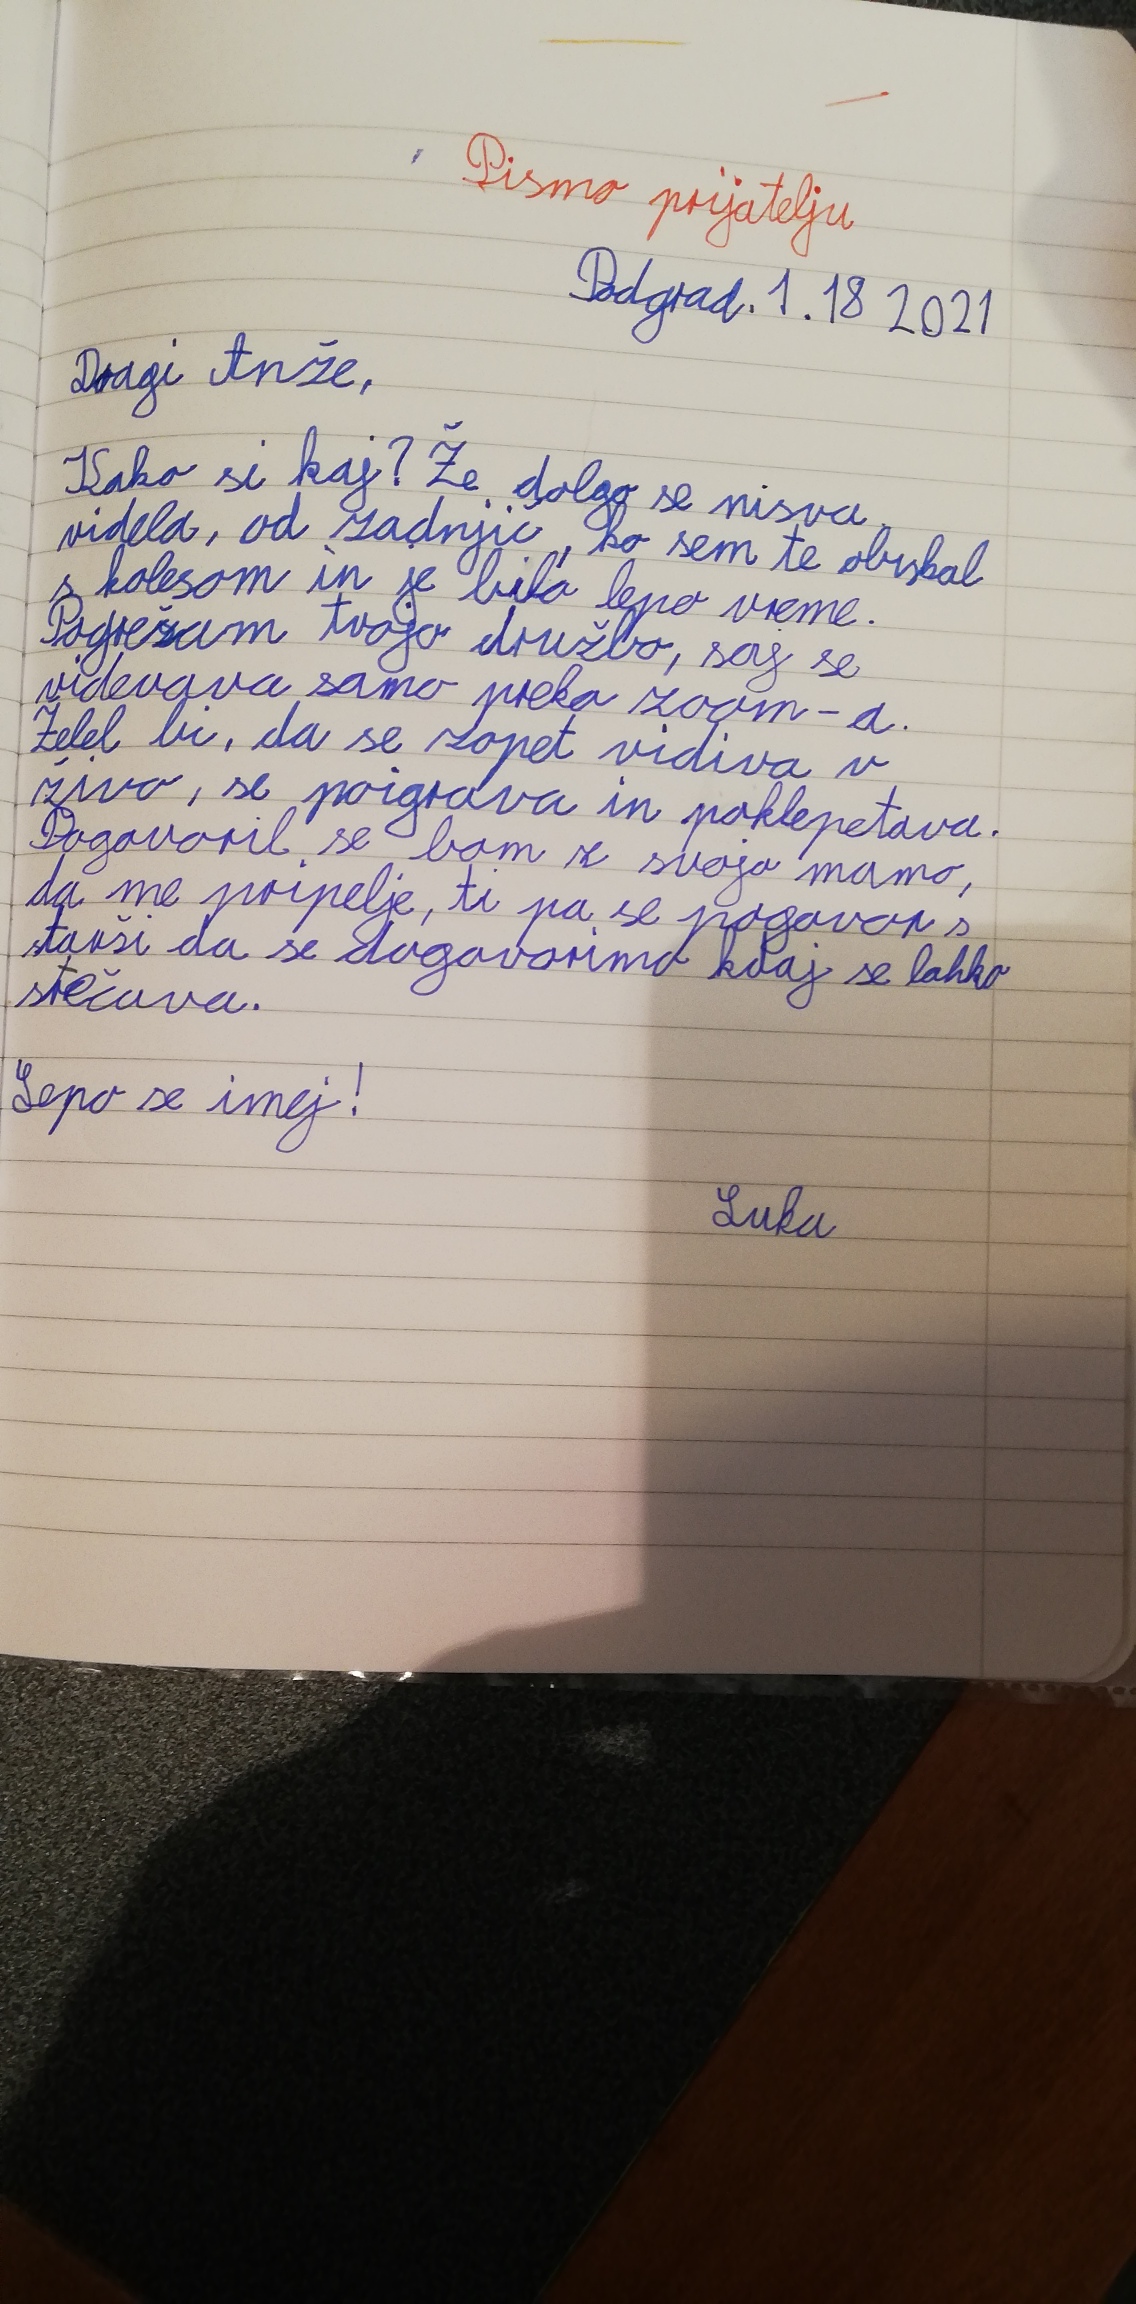 Pismo prijatelju
Podgrad. 1. 18 2021
Dragi Anže,
Kako si kaj? Že dolgo se nisva
videla, od zadnjič, ko sem te obiskal
s kolesom in je bilo lepo vreme.
Pogrešam tvojo družbo, saj se
videvava samo preko zoom-a.
Želel bi, da se zopet vidiva v
živo, se poigrava in poklepetava.
Dogovoril se bom z svojo mamo,
da me pripelje, ti pa se pogovor s
starši da se dogovorimo kdaj se lahko
srečava.
Lepo se imej!
Luka